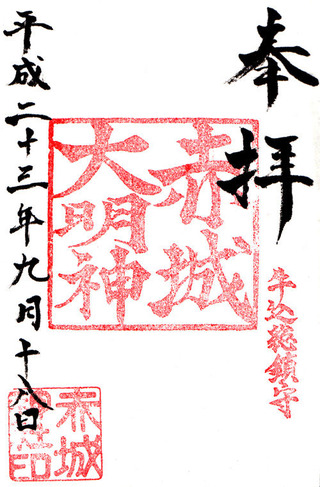 奉拝
牛込総鎮守
赤城
大明神
平成二十三年九月十八日
赤城